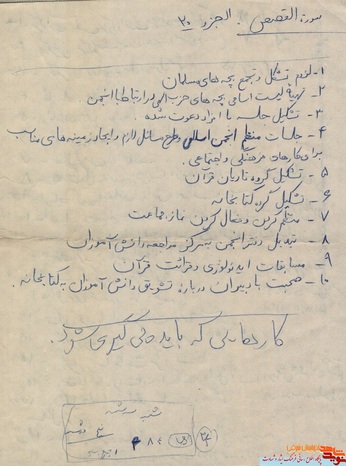 سورة القصص . الجزء ۲۰
۱- لزوم تشکل و تجمع بچه های مسلمان
۲- تهیه لیست اسامی بچه های حزب الهی در ارتباط با انجمن
۳- تشکیل جلسه با افراد دعوت شده
۴- جلسات منظم انجمن اسلامی و طرح مسائل لازم و ایجاد زمینه های مناسب
برای کارهای فرهنگی و اجتماعی
۵- تشکیل گروه قاریان قرآن
۶- تشکیل گروه کتابخانه
۷- منظم کردن و فعال کردن نماز جماعت
۸- تبدیل دفتر انجمن به مرکز مراجعه دانش آموزان
۹- مسابقات ایدئولوژی و قرائت قرآن
۱۰- صحبت با دبیران درباره تشویق دانش آموزان به کتابخانه .
کارهایی که باید پی گیری شود.